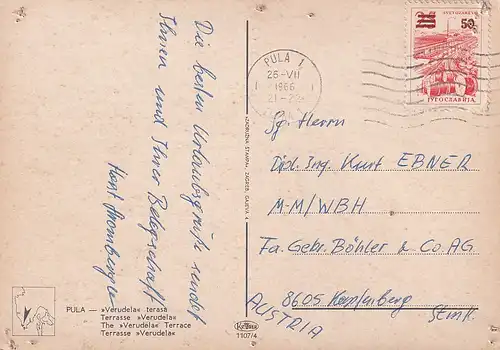 Die besten Urlaubsgrüße sendet
Ihnen und Ihrer Belegschaft
Horst
PULA — »Verudela« terasa
Terrasse »Verudela«
The »Verudela« Terrace
Terrasse »Verudela«
»ZADRUŽNA ŠTAMPA«, ZAGREB, GAJEVA 4
1107/4
PULA 1
26-VII
1966
21-22
50
JУГОСЛАВИЈА
Sg. Herrn
Dipl. Ing. Kurt EBNER
M-M/WBH
Fa. Gebr. Böhler & Co. AG.
8605 Kapfenberg
Stmk.
AUSTRIA